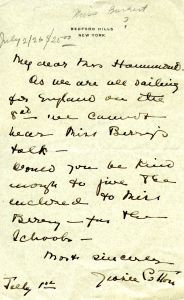 Miss Burnet
July 2/26 $25.00
BEDFORD HILLS
NEW YORK.
My dear Mrs Hammond.
As we are all sailing
for England on the
8th we cannot
hear Miss Berry's
talk —
Would you be kind
enough to give the
enclosed to Miss
Berry — for the
Schools —
Most sincerely
July 1st